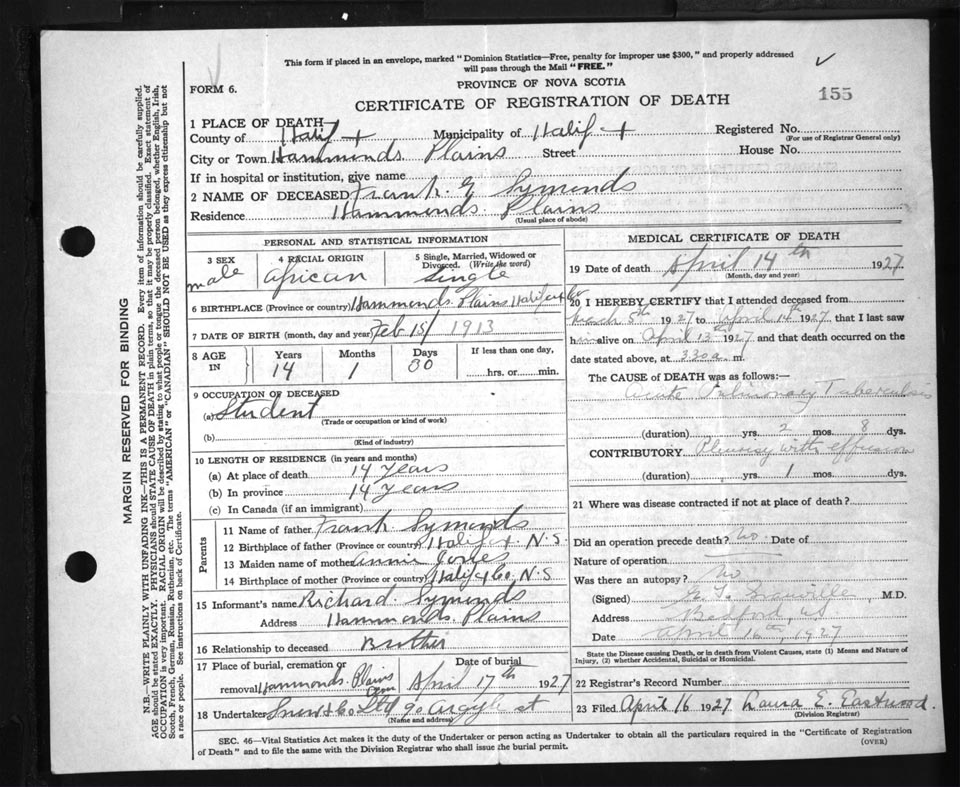 This form if placed in an envelope, marked "Dominion Statistics—Free, penalty for improper use $300," and properly addressed
will pass through the Mail "FREE."
FORM 6.
PROVINCE OF NOVA SCOTIA
CERTIFICATE OF REGISTRATION OF DEATH
155
MARGIN RESERVED FOR BINDING
N.B.—WRITE PLAINLY WITH UNFADING INK—THIS IS A PERMANENT RECORD. Every item of information should be carefully supplied.
AGE should be stated EXACTLY. PHYSICIANS should STATE CAUSE OF DEATH in plain terms, so that it may be properly classified. Exact statement of
OCCUPATION is very important. RACIAL ORIGIN will be described by stating to what people or tongue the deceased person belonged, whether English, Irish,
Scotch, French, German, Russian, Ruthenian, etc. The terms "AMERICAN" or "CANADIAN" SHOULD NOT BE USED as they express citizenship but not
a race or people. See instructions on back of Certificate.
1 PLACE OF DEATH
County of Halifx Municipality of Halifx Registered No.
(For use of Registrar General only)
City or Town Hammonds Plains Street House No.
If in hospital or institution, give name
2 NAME OF DECEASED Frank G Symonds
Residence Hammonds Plains
(Usual place of abode)
PERSONAL AND STATISTICAL INFORMATION
3 SEX
male
4 RACIAL ORIGIN
African
5 Single, Married, Widowed or
Divorced. (Write the word)
Single
6 BIRTHPLACE (Province or country) Hammonds Plains Halifax Co
7 DATE OF BIRTH (month, day and year) Feb 15/1913
8 AGE IN
Years Months Days If less than one day,
14 1 30 hrs. or min.
9 OCCUPATION OF DECEASED
(a) Student
(Trade or occupation or kind of work)
(b)
(Kind of industry)
10 LENGTH OF RESIDENCE (in years and months)
(a) At place of death 14 years
(b) In province 14 years
(c) In Canada (if an immigrant)
Parents
11 Name of father Frank Symonds
12 Birthplace of father (Province or country) Halifx N.S.
13 Maiden name of mother Annie
14 Birthplace of mother (Province or country) Halifx Co N.S
15 Informant's name Richard Symonds
Address Hammonds Plains
16 Relationship to deceased Brother
17 Place of burial, cremation or Date of burial
removal Hammonds Plains Cem April 17th 1927
18 Undertaker Snow & Co Ltd 90 Argyle st
(Name and address)
MEDICAL CERTIFICATE OF DEATH
19 Date of death April 14th 1927
(Month, day and year)
20 I HEREBY CERTIFY that I attended deceased from
March 5th 1927 to April 14th 1927 that I last saw
him alive on April 13th 1927 and that death occurred on the
date stated above, at 330a m.
The CAUSE of DEATH was as follows:—
Acute Pulmonary Tuberculosis
(duration) yrs. 2 mos. 8 dys.
CONTRIBUTORY Pleurisy with effusion
(duration) yrs. 1 mos. dys.
21 Where was disease contracted if not at place of death?
Did an operation precede death? No. Date of
Nature of operation
Was there an autopsy? No
(Signed) M.D.
Address Bedford, NS
Date April 16th, 1927
State the Disease Causing Death, or in death from Violent Causes, state (1) Means and Nature of
Injury, (2) whether Accidental, Suicidal or Homicidal.
22 Registrar's Record Number
23 Filed April 16 1927 Laura E. Eastwood.
(Division Registrar)
SEC. 46—Vital Statistics Act makes it the duty of the Undertaker or person acting as Undertaker to obtain all the particulars required in the "Certificate of Registration
of Death" and to file the same with the Division Registrar who shall issue the burial permit.
(OVER)